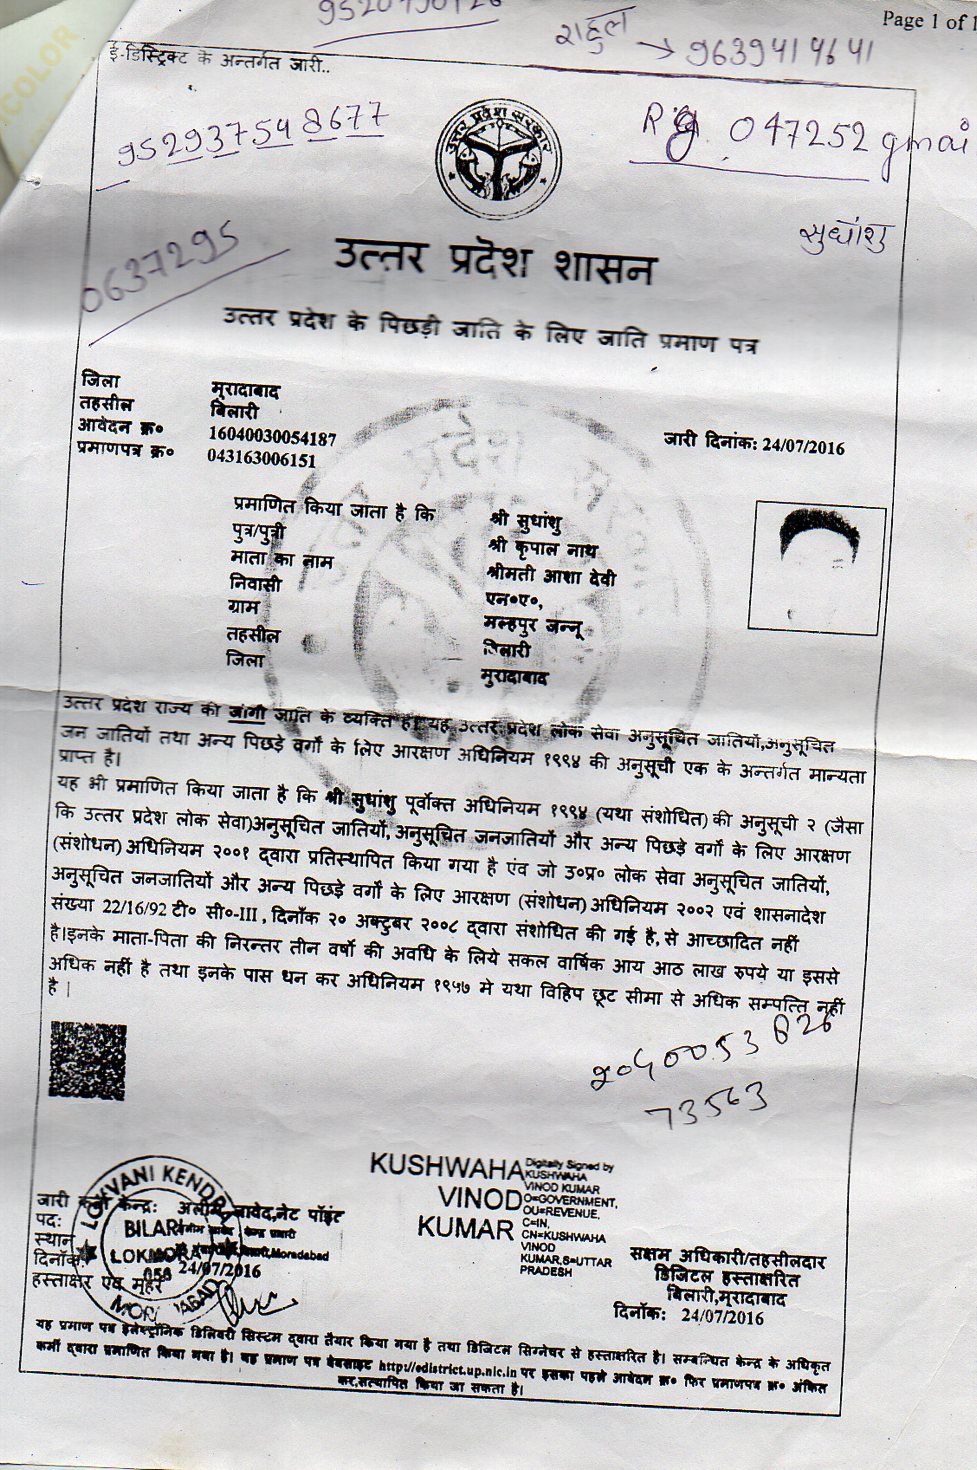 Page 1 of 1
राहुल
→ 9639414641
ई-डिस्ट्रिक्ट के अन्तर्गत जारी..
952937548677
047252 gmai
उत्तर प्रदेश सरकार
सुधांशु
0637295
उत्तर प्रदेश शासन
उत्तर प्रदेश के पिछड़ी जाति के लिए जाति प्रमाण पत्र
जिला मुरादाबाद
तहसील बिलारी
आवेदन क्र० 16040030054187
जारी दिनांक: 24/07/2016
प्रमाणपत्र क्र० 043163006151
प्रमाणित किया जाता है कि श्री सुधांशु
पुत्र/पुत्री श्री कृपाल नाथ
माता का नाम श्रीमती आशा देवी
निवासी एन०ए०,
ग्राम मल्हपुर जन्नू
तहसील बिलारी
जिला मुरादाबाद
उत्तर प्रदेश राज्य की जोगी जाति के व्यक्ति है। यह उत्तर प्रदेश लोक सेवा अनुसूचित जातियों,अनुसूचित
जन जातियों तथा अन्य पिछड़े वर्गों के लिए आरक्षण अधिनियम १९९४ की अनुसूची एक के अन्तर्गत मान्यता
प्राप्त है।
यह भी प्रमाणित किया जाता है कि श्री सुधांशु पूर्वोक्त अधिनियम १९९४ (यथा संशोधित) की अनुसूची २ (जैसा
कि उत्तर प्रदेश लोक सेवा)अनुसूचित जातियों, अनुसूचित जनजातियों और अन्य पिछड़े वर्गों के लिए आरक्षण
(संशोधन) अधिनियम २००१ द्वारा प्रतिस्थापित किया गया है एंव जो उ०प्र० लोक सेवा अनुसूचित जातियों,
अनुसूचित जनजातियों और अन्य पिछड़े वर्गों के लिए आरक्षण (संशोधन) अधिनियम २००२ एवं शासनादेश
संख्या 22/16/92 टी० सी०-III , दिनाँक २० अक्टुबर २००८ द्वारा संशोधित की गई है, से आच्छादित नहीं
है।इनके माता-पिता की निरन्तर तीन वर्षो की अवधि के लिये सकल वार्षिक आय आठ लाख रुपये या इससे
अधिक नहीं है तथा इनके पास धन कर अधिनियम १९५७ मे यथा विहिप छूट सीमा से अधिक सम्पत्ति नहीं
है |
73563
KUSHWAHA
VINOD
KUMAR
Digitally Signed by
KUSHWAHA
VINOD KUMAR
O=GOVERNMENT,
OU=REVENUE,
C=IN,
CN=KUSHWAHA
VINOD
KUMAR,S=UTTAR
PRADESH
LOKVANI KENDRA
BILARI
056
जारी कर्ता केन्द्र: अलीम जावेद,नेट पॉइंट
पद:
स्थान
दिनाँक: 24/07/2016
हस्ताक्षर एंव मुहर
सक्षम अधिकारी/तहसीलदार
डिजिटल हस्ताक्षरित
बिलारी,मुरादाबाद
दिनाँक: 24/07/2016
यह प्रमाण पत्र इलेक्ट्रॉनिक डिलिवरी सिस्टम द्वारा तैयार किया गया है तथा डिजिटल सिग्नेचर से हस्ताक्षरित है। सम्बन्धित केन्द्र के अधिकृत
कर्मी द्वारा प्रमाणित किया गया है। यह प्रमाण पत्र वेबसाइट http://edistrict.up.nic.in पर इसका पहले आवेदन क्र० फिर प्रमाणपत्र क्र० अंकित
कर,सत्यापित किया जा सकता है।